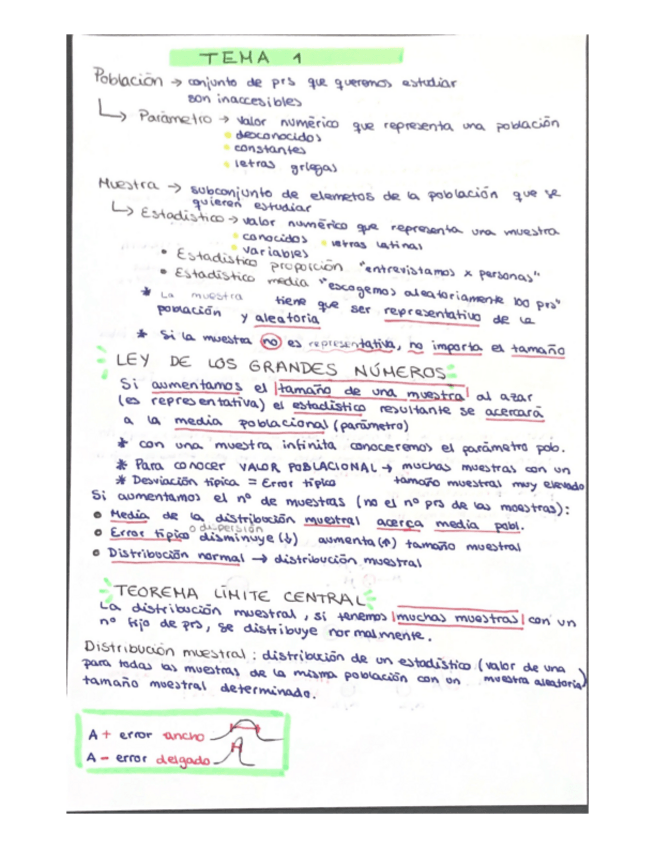 TEMA 1
Población → conjunto de prs que queremos estudiar
son inaccesibles
Parámetro → valor numérico que representa una población
desconocidos
constantes
letras griegas
Muestra → subconjunto de elemetos de la población que se
quieren estudiar
Estadístico → valor numérico que representa una muestra
conocidos • letras latinas
variables
• Estadístico proporción "entrevistamos x personas"
• Estadístico media "escogemos aleatoriamente 100 prs"
* La muestra tiene que ser representativa de la
población y aleatoria
* Si la muestra no es representativa, no importa el tamaño
LEY DE LOS GRANDES NÚMEROS
Si aumentamos el tamaño de una muestra al azar
(es representativa) el estadístico resultante se acercará
a la media poblacional (parámetro)
* con una muestra infinita conoceremos el parámetro pob.
* Para conocer VALOR POBLACIONAL → muchas muestras con un
tamaño muestral muy elevado
* Desviación típica = Error típico
Si aumentamos el nº de muestras (no el nº prs de las moestras):
• Media de la distribución muestral acerca media pobl.
• Error típico o dispersión disminuye (↓) aumenta (↑) tamaño muestral
• Distribución normal → distribución muestral
TEOREMA LÍMITE CENTRAL
La distribución muestral, si tenemos muchas muestras con un
nº fijo de prs, se distribuye normalmente.
Distribución muestral: distribución de un estadístico (valor de una
muestra aleatoria)
para todas las muestras de la misma población con un
tamaño muestral determinado.
A + error ancho
A - error delgado